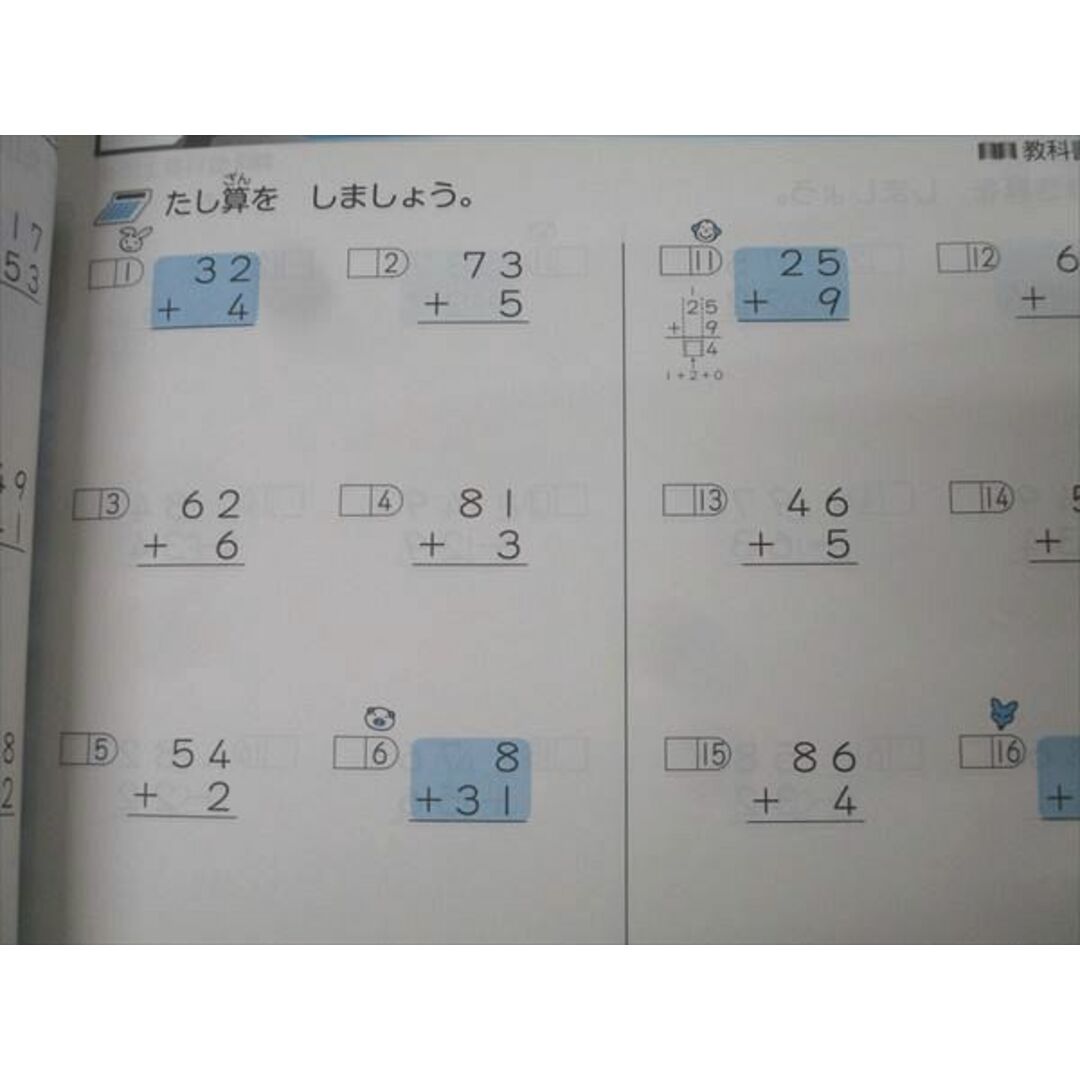 教科
たし算を しましょう。
ざん
1
32
+ 4
2
73
+ 5
3
62
+ 6
4
81
+ 3
5
54
+ 2
6
8
+31
11
25
+ 9
1
25
+ 9
4
1+2+0
12
6
+
13
46
+ 5
14
5
+
15
86
+ 4
16
+
17
53
9
8
2